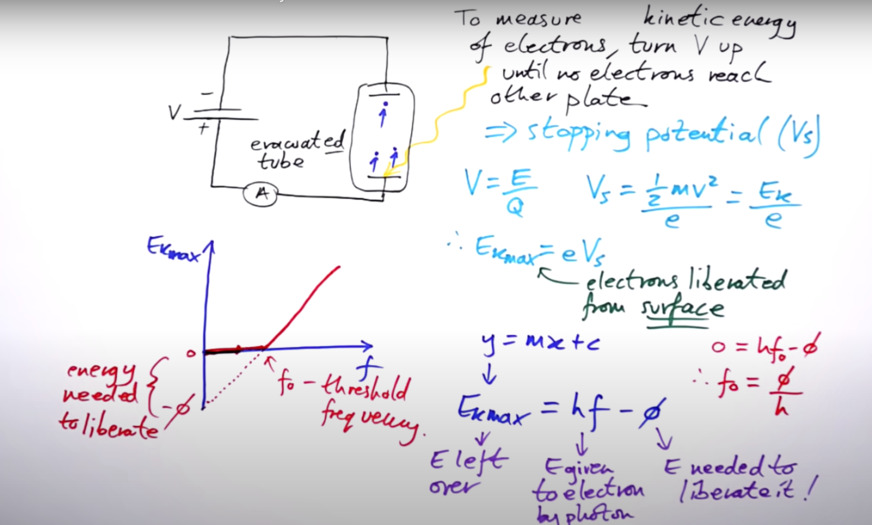 To measure kinetic energy
of electrons, turn V up
until no electrons reach
other plate
⇒ stopping potential (Vs)
V = E/Q Vs = ½mv²/e = Eк/e
∴ Eкmax = eVs
electrons liberated
from surface
−
V
+
evacuated
tube
A
Eкmax
0
f
energy
needed
to liberate
-ϕ
f₀ - threshold
frequency.
y = mx + c
0 = hf₀ - ϕ
∴ f₀ = ϕ/h
Eкmax = hf - ϕ
E left
over
E given
to electron
by photon
E needed to
liberate it!